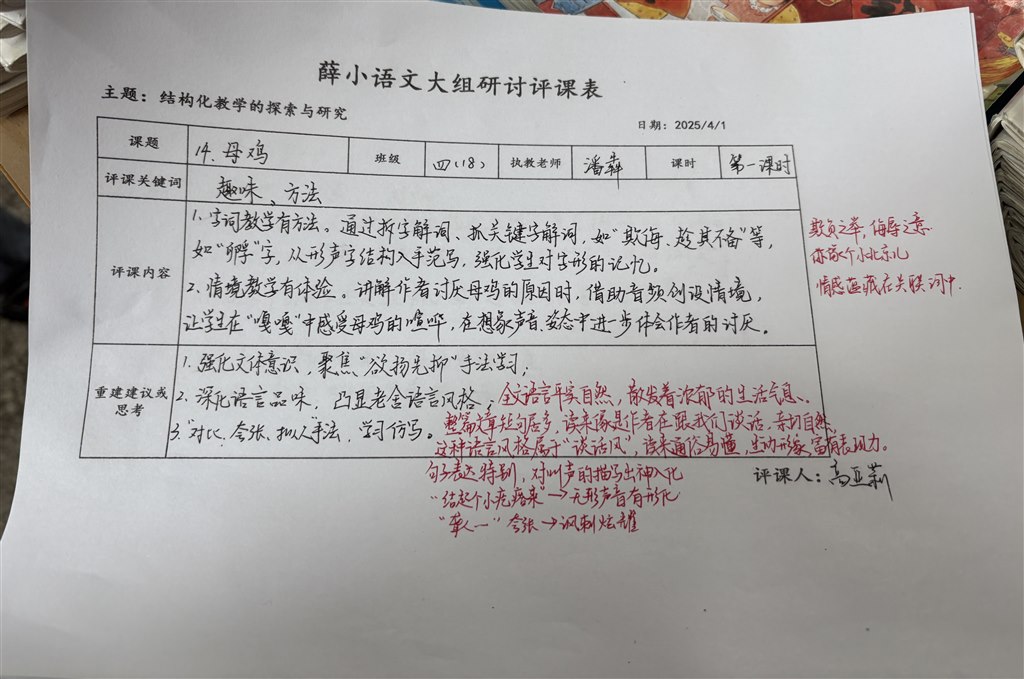 薛小语文大组研讨评课表
主题：结构化教学的探索与研究
日期：2025/4/1
课题 14.母鸡 班级 四（18） 执教老师 潘犇 课时 第一课时
评课关键词 趣味、方法
评课内容
1.字词教学有方法。通过拆字解词、抓关键字解词，如“欺侮、趁其不备”等，
如“孵”字，从形声字结构入手范写，强化学生对字形的记忆。
2.情境教学有体验。讲解作者讨厌母鸡的原因时，借助音频创设情境，
让学生在“嘎嘎”中感受母鸡的喧哗，在想象声音、姿态中进一步体会作者的讨厌。
欺负之举，侮辱之意
小北京儿
情感蕴藏在关联词中.
重建建议或
思考
1.强化文体意识，聚焦“欲扬先抑”手法学习；
2.深化语言品味，凸显老舍语言风格；
全文语言平实自然，散发着浓郁的生活气息、
3.“对比、夸张、拟人”手法，学习仿写。
整篇文章短句居多，读来像是作者在跟我们谈话，亲切自然，
这种语言风格属于“谈话风”，读来通俗易懂，生动形象，富有表现力。
句子表达特别，对叫声的描写出神入化
“结起个小疙瘩来”→无形声音有形化
夸张→讽刺炫耀
评课人：高亚莉